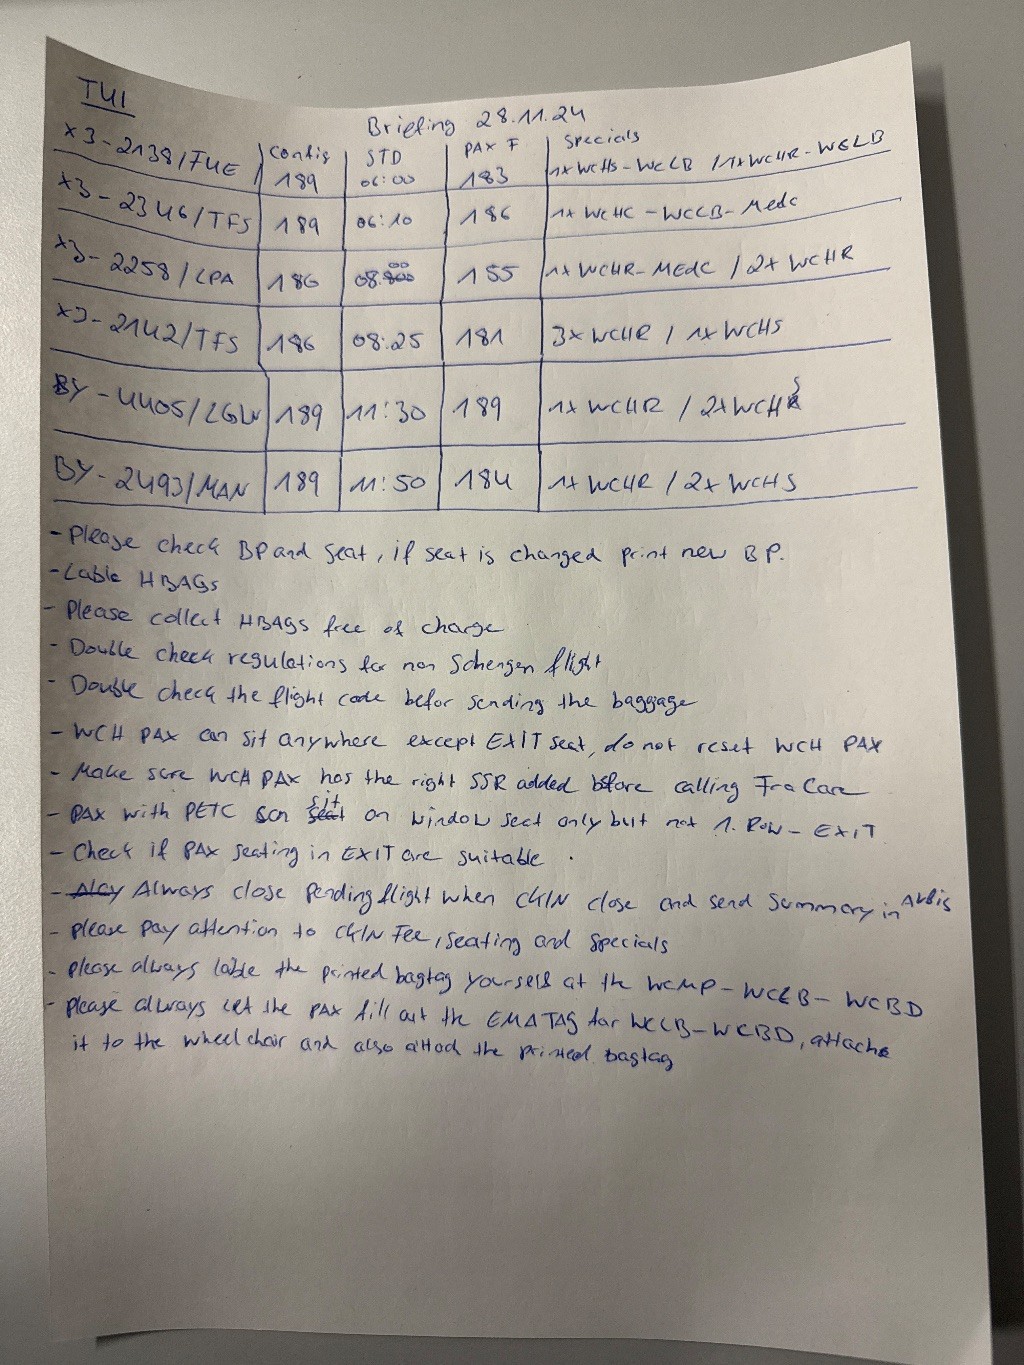 TUI
Briefing 28.11.24
X3-2138/FUE Config 189 STD 06:00 PAX F 183 Specials 1x WCHS-WCLB / 1x WCHR-WCLB
X3-2346/TFS 189 06:10 186 1x WCHC-WCCB-Medc
X3-2258/LPA 186 08:00 155 1x WCHR-MEDC / 2x WCHR
X3-2142/TFS 186 08:25 181 3x WCHR / 1x WCHS
BY-4405/LGW 189 11:30 189 1x WCHR / 2x WCHS
BY-2493/MAN 189 11:50 184 1x WCHR / 2x WCHS
- Please check BP and seat, if seat is changed print new BP.
- Lable HBAGs
- Please collect HBAGs free of charge
- Double check regulations for non Schengen flight
- Double check the flight code befor sending the baggage
- WCH PAX can sit anywhere except EXIT seat, do not reset WCH PAX
- Make sure WCH PAX has the right SSR added before calling Fra Care
- PAX with PETC can sit on window seat only but not 1. Row - EXIT
- Check if PAX seating in EXIT are suitable.
- Always close pending flight when CKIN close and send Summary in
- Please pay attention to CKIN Fee, seating and specials
- Please always lable the printed bagtag yourself at the WCMP-WCLB-WCBD
- Please always let the PAX fill out the EMA TAG for WCLB-WCBD, attach
it to the wheelchair and also attach the printed bagtag